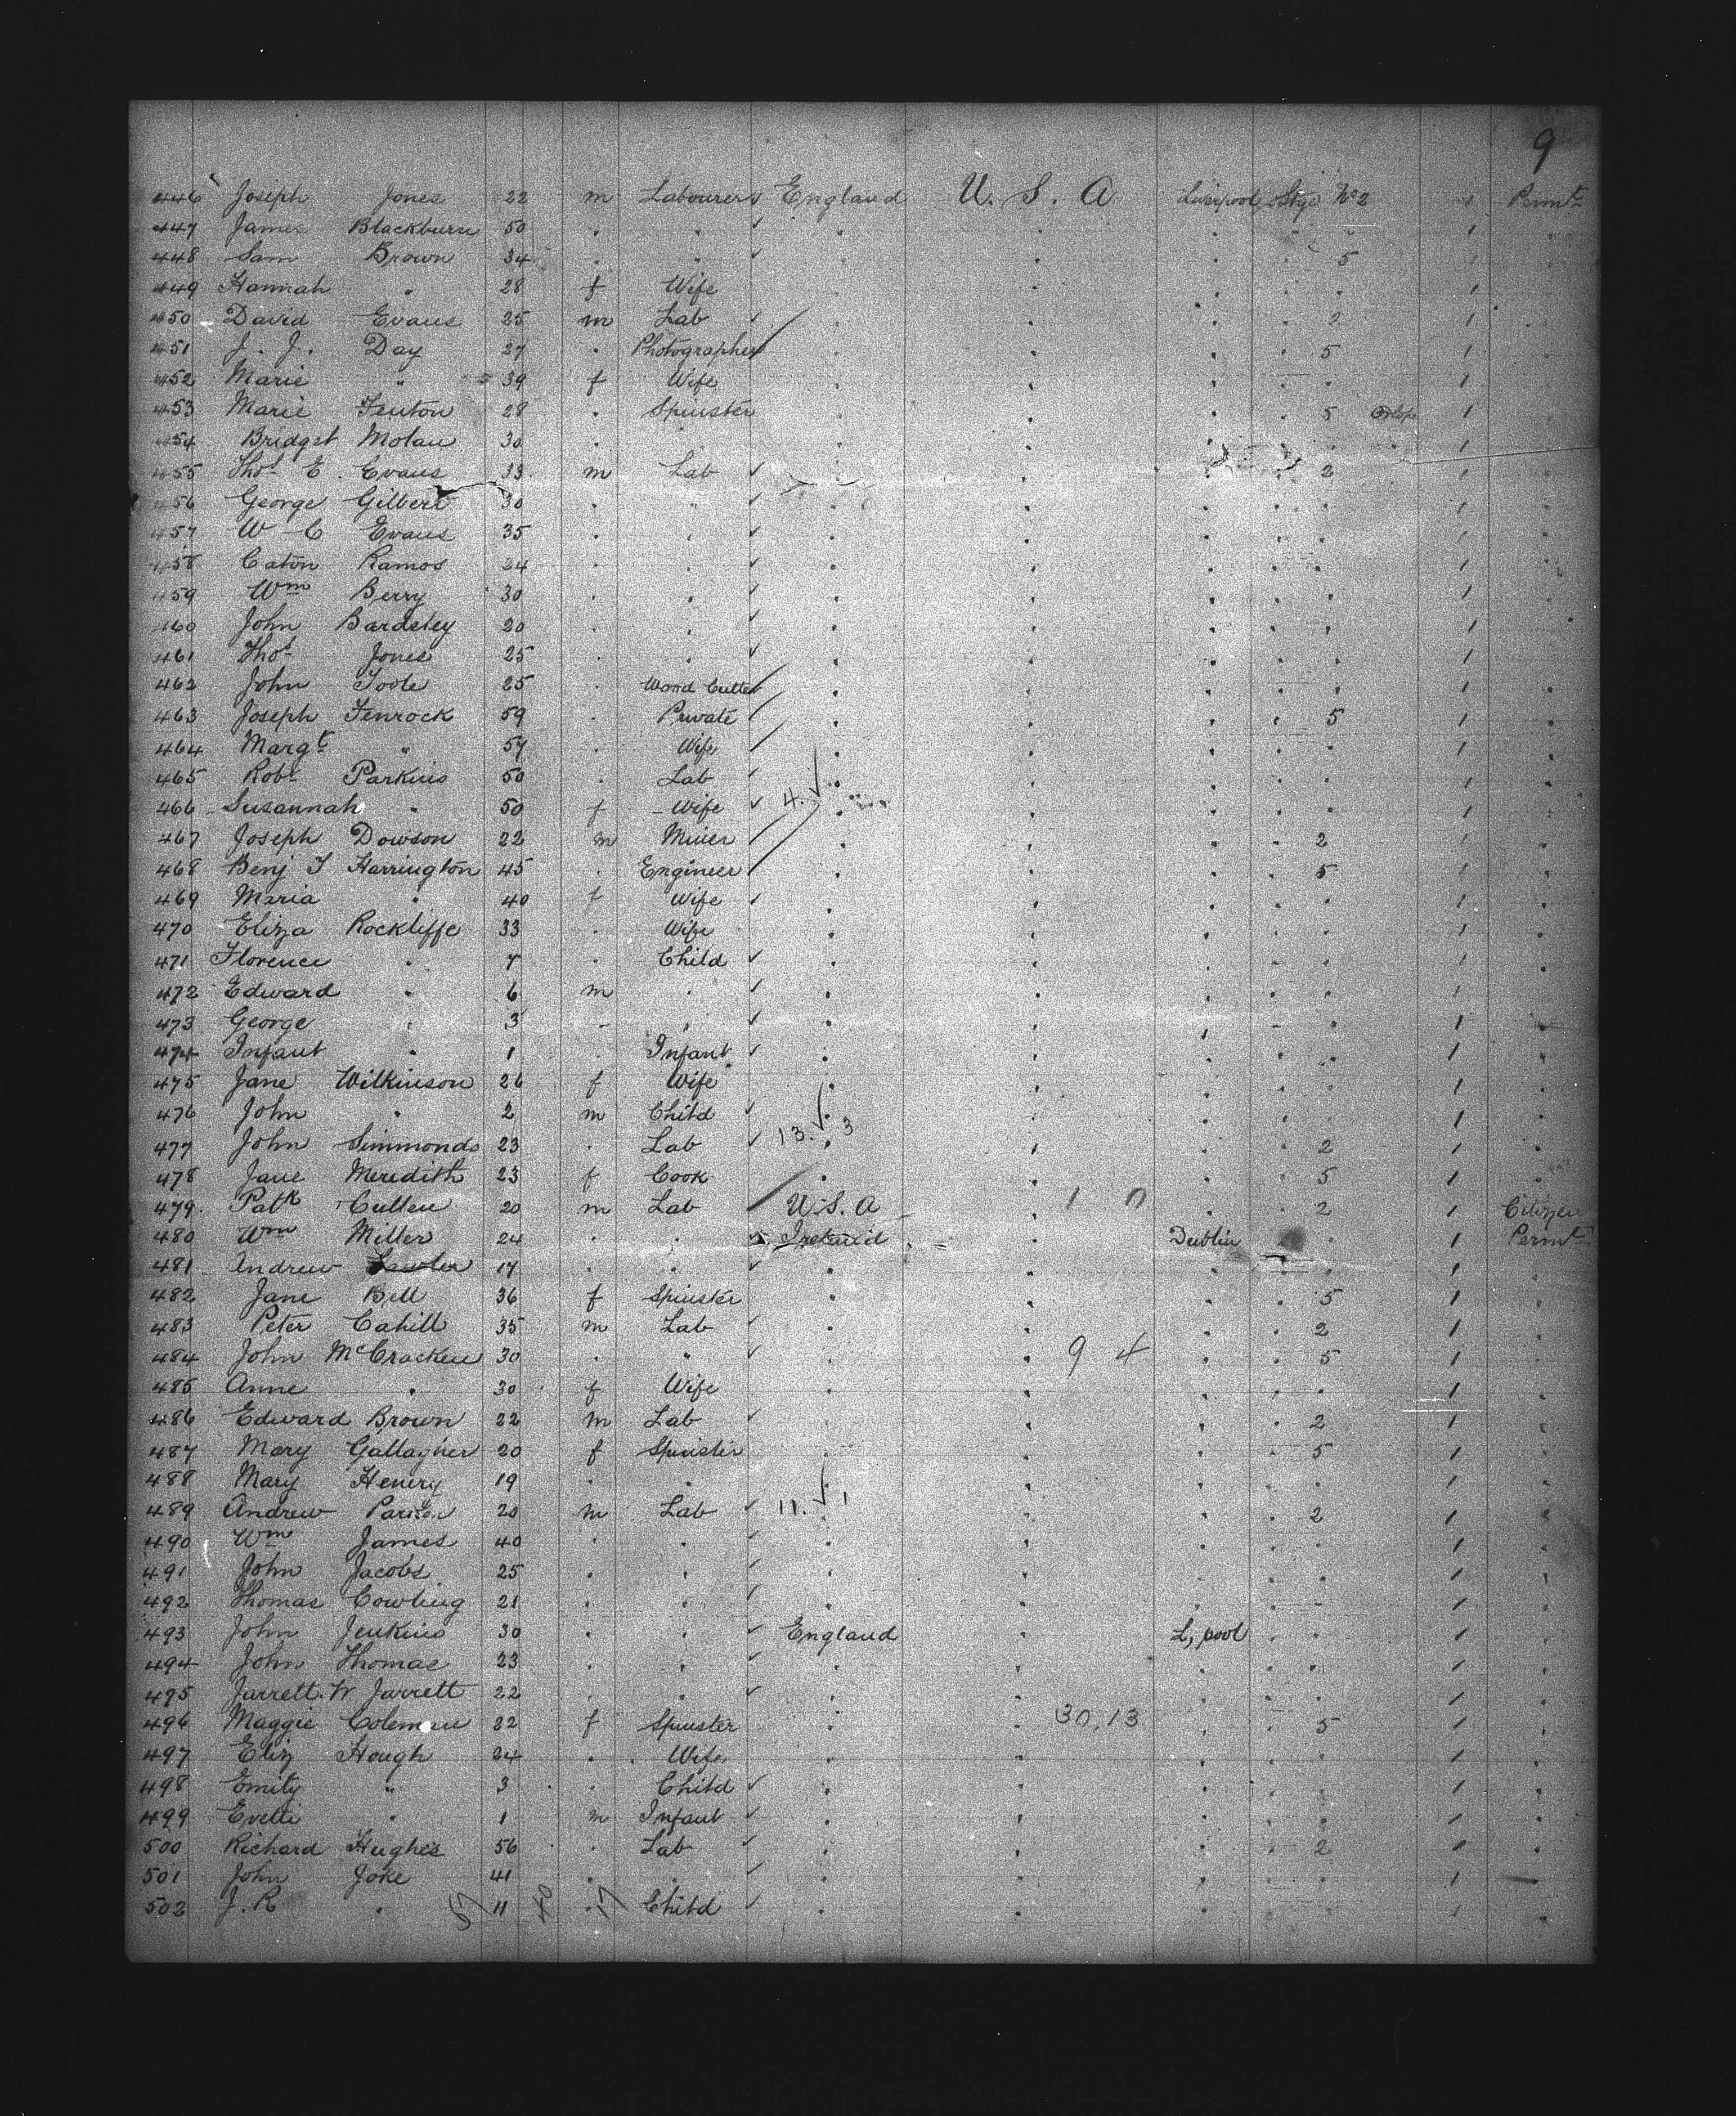 9
446 Joseph Jones 22 m Labourer ✓ England U. S. A Liverpool Stge No 2 1 Permt
447 James Blackburn 50 . . ✓ . . . . . 1 .
448 Sam Brown 34 . . ✓ . . . . 5 1 .
449 Hannah " 28 f Wife . . . . . 1 .
450 David Evans 25 m Lab ✓ . . . . 2 1 .
451 J. J. Day 27 . Photographer . . . . 5 1 .
452 Marie " 39 f Wife . . . . . 1 .
453 Marie Fenton 28 . Spinster . . . . 5 1 .
454 Bridget Molan 30 . . . . . . . 1 .
455 Thos E. Evans 33 m Lab ✓ . . . . 2 1 .
456 George Gilbert 30 . . ✓ . . . . . 1 .
457 W C Evans 35 . . ✓ . . . . . 1 .
458 Caton Ramos 24 . . ✓ . . . . . 1 .
459 Wm Berry 30 . . ✓ . . . . . 1 .
460 John Bardsley 20 . . ✓ . . . . . 1 .
461 Thos Jones 25 . . ✓ . . . . . 1 .
462 John Toole 25 . Wood Cutter . . . . . 1 .
463 Joseph Fenrock 59 . Private . . . . 5 1 .
464 Margt " 57 . Wife . . . . . 1 .
465 Robt Parkins 50 . Lab ✓ . . . . . 1 .
466 Susannah " 50 f Wife ✓ 4. ✓ . . . . 1 .
467 Joseph Dowson 22 m Miner . . . . 2 1 .
468 Benj T Harrington 45 . Engineer . . . . 5 1 .
469 Maria " 40 f Wife ✓ . . . . . 1 .
470 Eliza Rockliffe 33 . Wife . . . . . 1 .
471 Florence " 7 . Child ✓ . . . . . 1 .
472 Edward " 6 m . ✓ . . . . . 1 .
473 George " 3 . . ✓ . . . . . 1 .
474 Infant " 1 . Infant ✓ . . . . . 1 .
475 Jane Wilkinson 26 f Wife . . . . . 1 .
476 John " 2 m Child ✓ . . . . . 1 .
477 John Simmonds 23 . Lab ✓ 13. ✓ 3 . . . 2 1 .
478 Jane Meredith 23 f Cook . . . . 5 1 .
479. Patk Cullen 20 m Lab U. S. A . 1 0 . . 2 1 Citizen
480 Wm Miller 24 . . ✓ Ireland . Dublin . 1 Permt
481 Andrew 17 . . ✓ . . . . . 1 .
482 Jane Bell 36 f Spinster . . . . 5 1 .
483 Peter Cahill 35 m Lab ✓ . . . . 2 1 .
484 John McCracken 30 . " ✓ . . 9 4 . . 5 1 .
485 Anne " 30 f Wife . . . . . 1 .
486 Edward Brown 22 m Lab ✓ . . . . 2 1 .
487 Mary Gallagher 20 f Spinster . . . . 5 1 .
488 Mary Henery 19 . . . . . . . 1 .
489 Andrew 20 m Lab ✓ 11. ✓ 1 . . . 2 1 .
490 Wm James 40 . . ✓ . . . . . 1 .
491 John Jacobs 25 . . ✓ . . . . . 1 .
492 Thomas Cowling 21 . . ✓ . . . . . 1 .
493 John Jenkins 30 . . ✓ England . L,pool . . 1 .
494 John Thomas 23 . . ✓ . . . . . 1 .
495 Jarrett. W Jarrett 22 . . ✓ . . . . . 1 .
496 Maggie Coleman 22 f Spinster . . 30,13 . . 5 1 .
497 Eliz Hough 24 . Wife . . . . . 1 .
498 Emily " 3 . Child ✓ . . . . . 1 .
499 1 m Infant ✓ . . . . . 1 .
500 Richard Hughes 56 . Lab ✓ . . . . 2 1 .
501 John Joke 41 . . ✓ . . . . . 1
502 J. R " 11 40 17 Child ✓ . . . . . 1 .